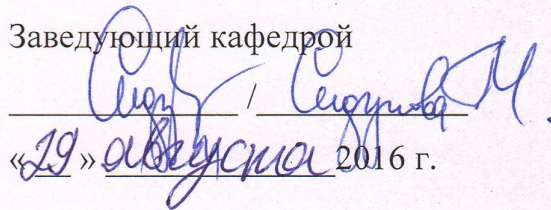 Заведующий кафедрой
/ Сидунова М
«29» августа 2016 г.